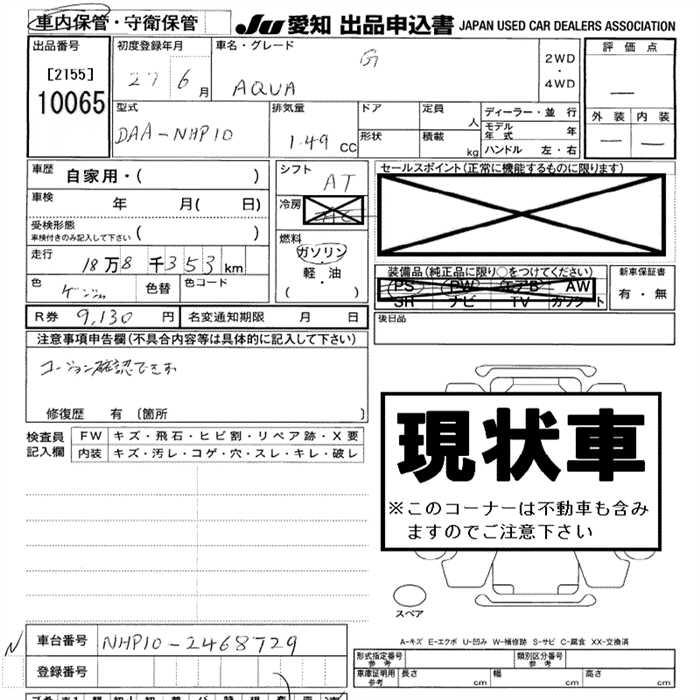 車内保管・守衛保管
JU 愛知 出品申込書 JAPAN USED CAR DEALERS ASSOCIATION
出品番号 初度登録年月 車名・グレード 評価点
[2155] 27 6月 AQUA G 2WD・4WD
10065
型式 排気量 ドア 定員 人 ディーラー・並行 外装 内装
DAA-NHP10 1.49 CC 形状 積載 kg モデル年式 年
ハンドル 左・右
車歴 自家用・( ) シフト AT セールスポイント(正常に機能するものに限ります)
車検 年 月( 日) 冷房
受検形態
車検付きのみ記入して下さい ( ) 燃料
ガソリン
軽・油
( ・ )
走行 18万8千353km 装備品(純正品に限り○をつけてください) 新車保証書
PS PW エアB AW 有・無
SR ナビ TV カワシート
色 色替 色コード
R券 9,130円 名変通知期限 月 日 後日品
注意事項申告欄(不具合内容等は具体的に記入して下さい)
コーション確認できず
修復歴 有 [箇所 ]
現状車
※このコーナーは不動車も含み
ますのでご注意下さい
検査員記入欄 FW キズ・飛石・ヒビ割・リペア跡・X要
内装 キズ・汚レ・コゲ・穴・スレ・キレ・破レ
スペア
A-キズ E-エクボ U-凹み W-補修跡 S-サビ C-腐食 XX-交換済
N 車台番号 NHP10-2468729
登録番号
形式指定番号 参考 類別区分番号 参考
車庫証明用 参考 長さ cm 幅 cm 高さ cm